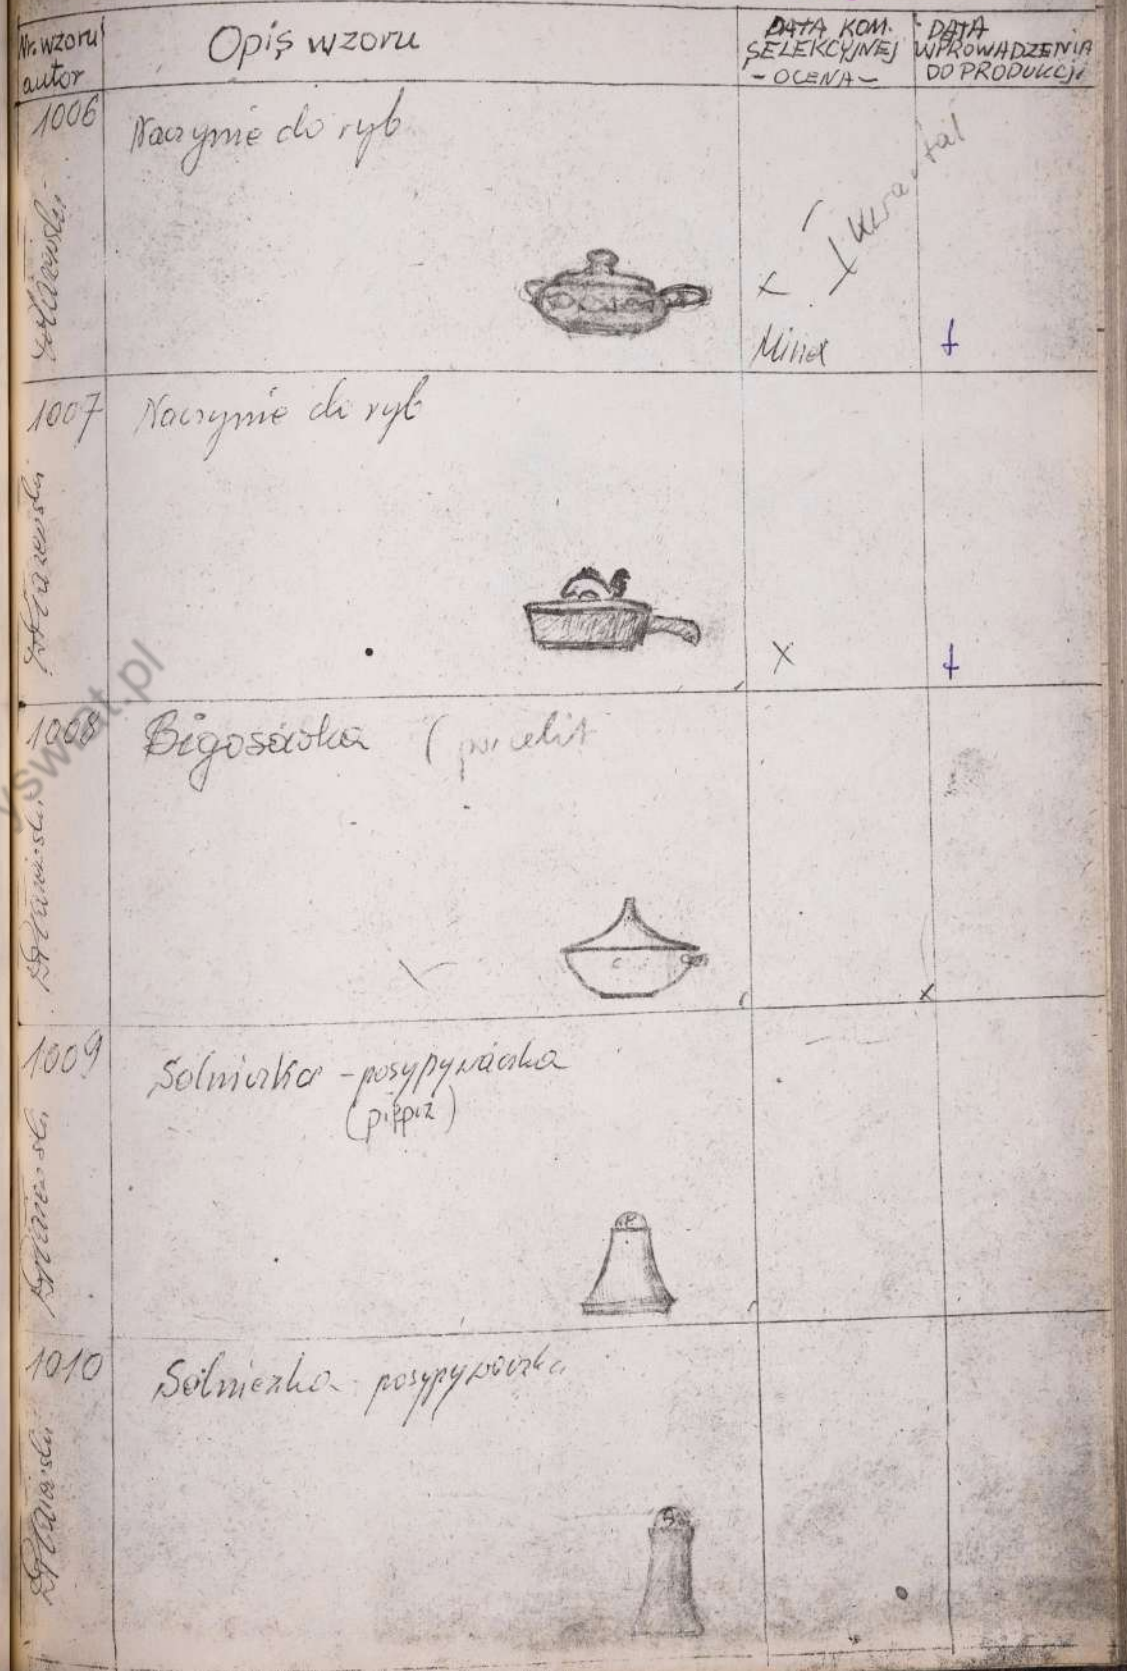 Nr. wzoru
autor
Opis wzoru
DATA KOM.
SELEKCYJNEJ
- OCENA -
DATA
WPROWADZENIA
DO PRODUKCJI
1006
Naczynie do ryb
I kwartał
x
Minex
+
1007
Naczynie do ryb
x
+
1008
Bigosówka (porcelit
x
1009
Solniczka - posypywaczka
(pieprz)
P
1010
Solniczka - posypywaczka
S
yswiat.pl